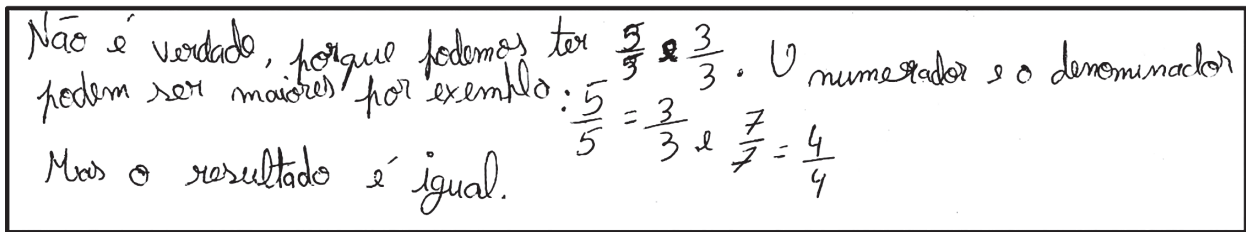 Não é verdade, porque podemos ter 5/5 e 3/3. O numerador e o denominador
podem ser maiores por exemplo: 5/5 = 3/3 e 7/7 = 4/4
Mas o resultado é igual.